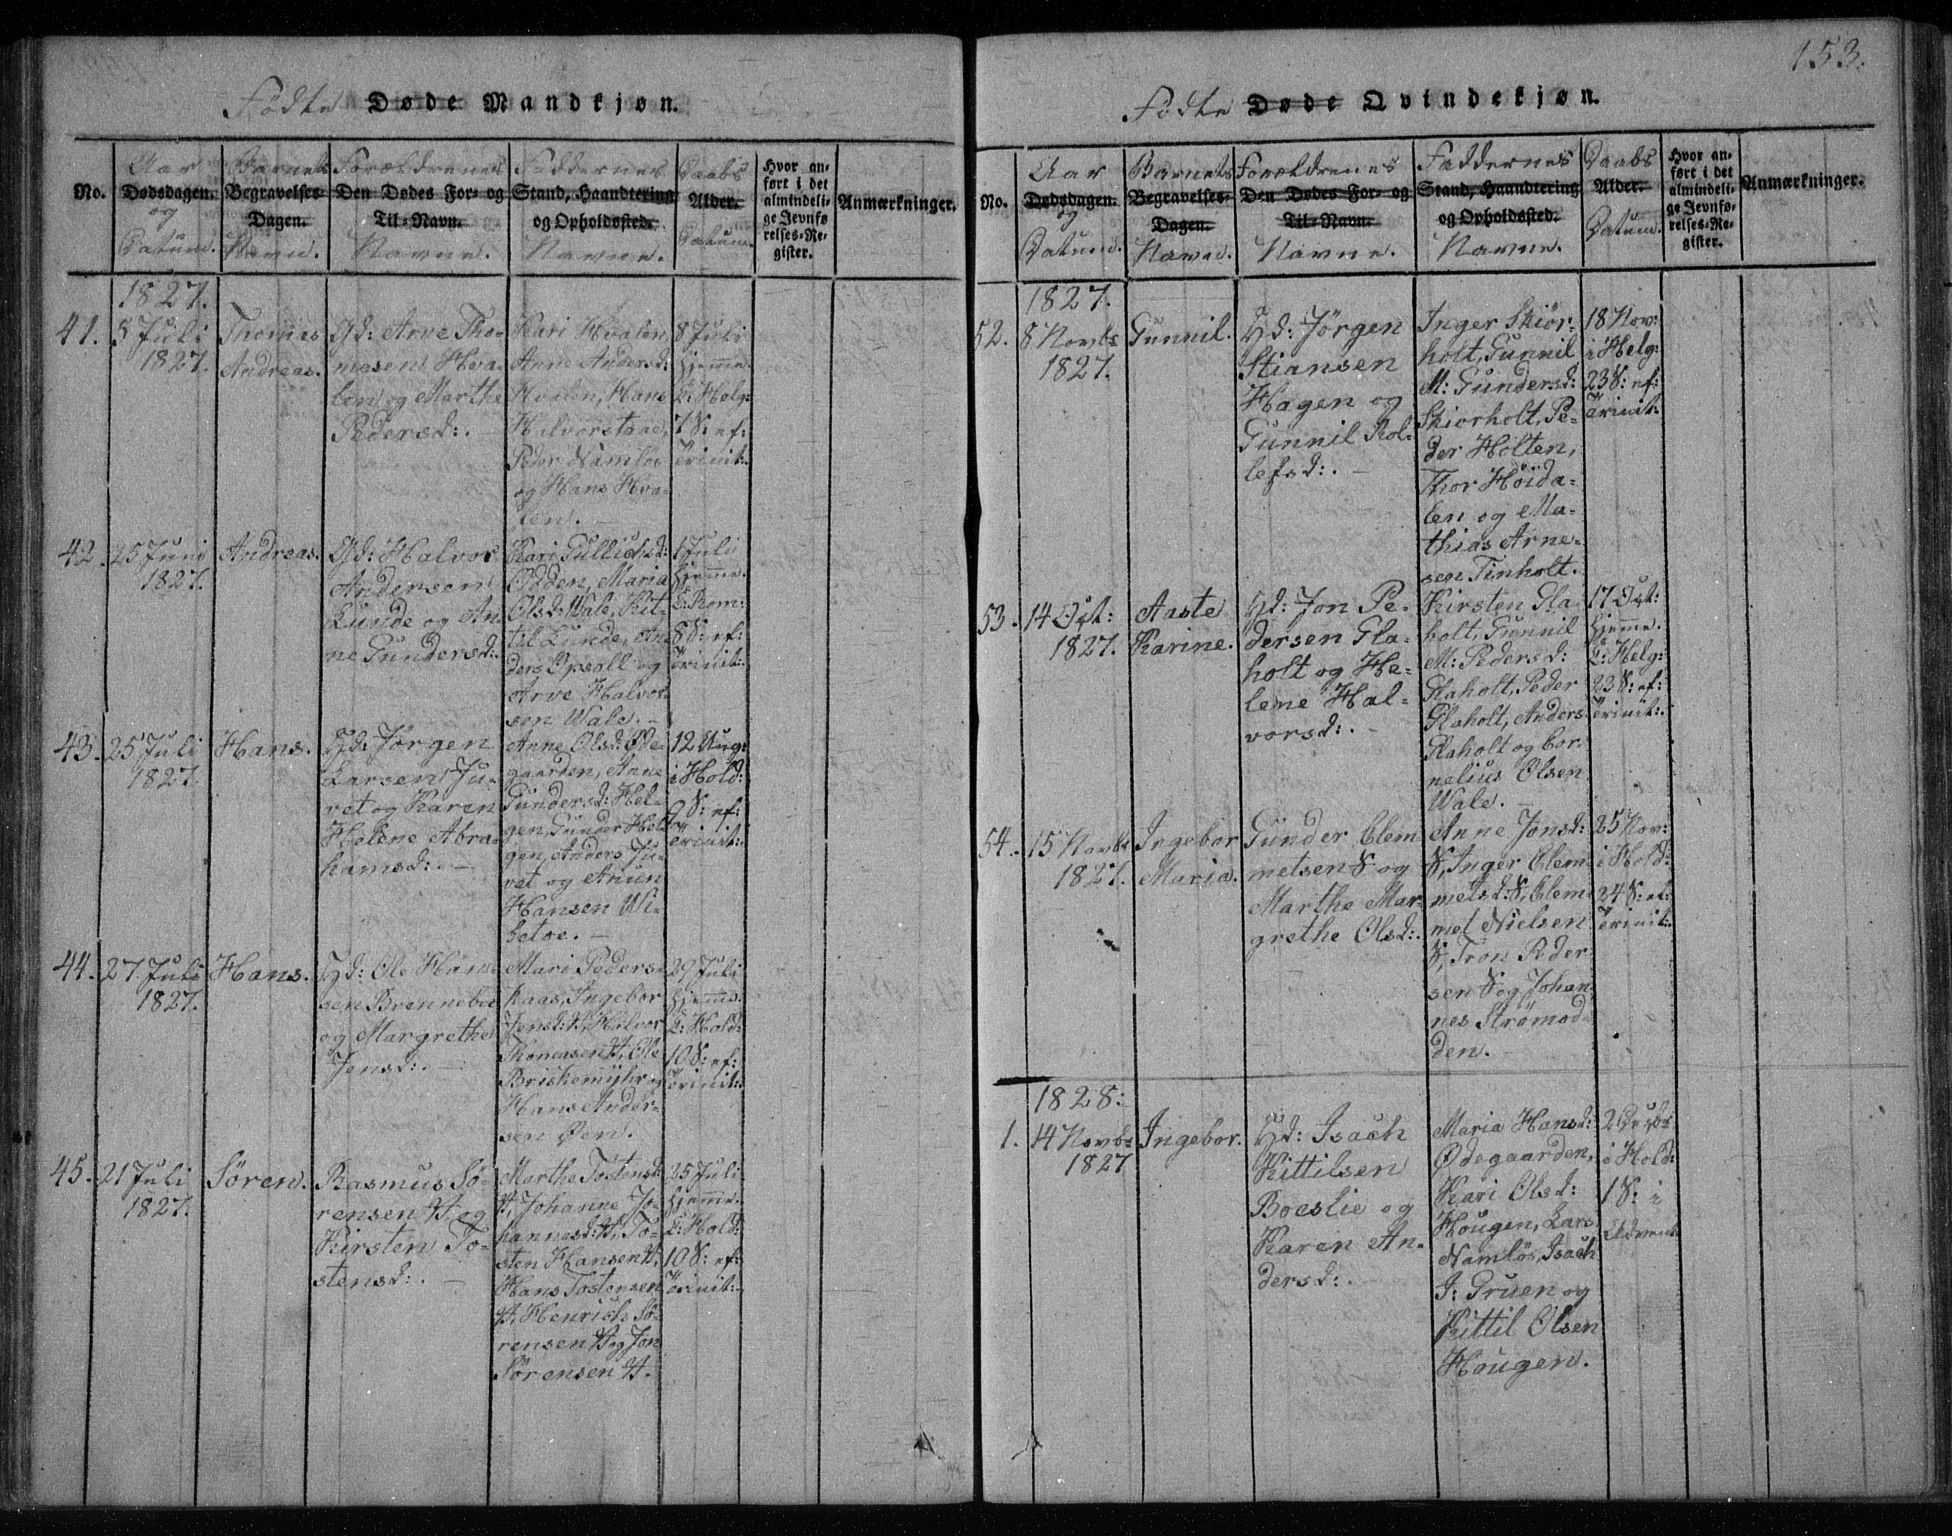 153.
Fødte Døde Mandkjøn.
No.
Aar
Dødsdagen.
og
Datum.
Barnets
Begravelses-
Dagen.
Navn.
Forældrenes
Den Dødes For- og
Til-Navn.
Navne.
Faddernes
Stand, Haandtering
og Opholdssted.
Navne.
Daabs
Alder.
Datum.
Hvor an-
ført i det
almindeli-
ge Jevnfø-
relses-Re-
gister.
Anmærkninger.
1827.
41.
5 Juli
1827.
Thomas
Andreas.
Gd: Arve Tho-
mesen Hva-
len og Marthe
Pedersd:. -
Kari Hvalen,
Anne Andersd:
Hvalen, Hans
Halvorstaae,
Peder Namløs
og Hans Hva-
len. -
8 Juli
Hjemme.
C: Helg:
7 S: ef:
Trinit:.
42.
25 Juni
1827.
Andreas.
Gd: Halvor
Andersen
Lunde og An-
ne Gundersd:.
Kari Gullichsd:
Odden, Maria
Olsd: Wale, Kit-
til Lunde, An-
ders Opsall og
Arve Halvor-
sen Wale. -
1 Juli
Hjemme.
C: Rom:
8 S: ef:
Trinit:.
43.
25 Juli
1827.
Hans.
Hd: Jørgen
Larsen Ju-
vet og Karen
Helene Abra-
hamsd:. -
Anne Olsd: Øde-
gaarden, Anne
Gundersd: Hel-
gen, Gunder Hel-
gen, Anders Ju-
vet og Anun
Hansen Wi-
betoe. -
12 Aug:
i Hold:
9 S: ef:
Trinit:.
44.
27. Juli
1827.
Hans.
Hd: Ole Han-
sen Brennebae
og Margrethe
Jensd:. -
Mari Pedersd:
kaas, Ingebor
Jensd: H, Halvor
Thomasen H, Ole
Briskemyhr og
Hans Ander-
sen Øen.
29 Juli
Hjemme.
C: Hold:
10 S: ef:
Trinit:.
45.
21 Juli
1827.
Søren.
Rasmus Sø-
rensen H og
Kirsten To-
stensd:. -
Marthe Tostensd:
H, Johanne Jo-
hannesd: H, To-
sten Hansen H,
Hans Tostensen
H, Henrich Sø-
rensen H og Jon
Sørensen H.
25 Juli
Hjemme.
C: Hold:
10 S: ef:
Trinit:.
Fødte Døde Qvindekjøn.
No.
Aar
Dødsdagen.
og
Datum.
Barnets
Begravelses-
Dagen.
Navn.
Forældrenes
Den Dødes For- og
Til-Navn.
Navne.
Faddernes
Stand, Haandtering
og Opholdssted.
Navne.
Daabs
Alder.
Datum.
Hvor an-
ført i det
almindeli-
ge Jevnfø-
relses-Re-
gister.
Anmærkninger.
1827.
52.
8 Novbr
1827.
Gunnil.
Hd: Jørgen
Stiansen
Hagen og
Gunnil Rol-
lefsd:. -
Inger Skiør-
holt, Gunnil
M: Gundersd:
Skiorholt, Pe-
der Holten,
Thor Høida-
len og Ma-
thias Arne-
sen Tinholt.
18 Nov:
i Helg:
23 S: ef:
Trinit:.
53.
14 Oct:
1827.
Aaste
Karine.
Hd: Jon Pe-
dersen Gla-
holt og He-
lene Hal-
vorsd:. -
Kirsten Gla-
holt, Gunnil
M: Pedersd:
Glaholt, Peder
Glaholt, Anders
Glaholt og Cor-
nelius Olsen
Wale. -
17 Oct:
Hjemme.
C: Helg:
23 S: ef:
Trinit:.
54.
15 Novbr
1827.
Ingebor
Maria.
Gunder Clem-
metsen S og
Marthe Mar-
grethe Olsd:.
Anne Jonsd:
S, Inger Clem-
metsd: S, Clem-
met Nielsen
S, Tron Peder-
sen S og Johan-
nes Strømod-
den. -
25 Nov:
i Hold:
24 S: ef:
Trinit:.
1828:
1.
14 Novbr
1827
Ingebor.
Hd: Isach
Kittilsen
Boeslie og
Karen An-
dersd:. -
Maria Hansd:
Ødegaarden,
Kari Olsd:
Hougen, Lars
Namløs, Isach
I: Gruen og
Kittil Olsen
Hougen.
2 Decbr
i Hold:
1 S: i
Advent